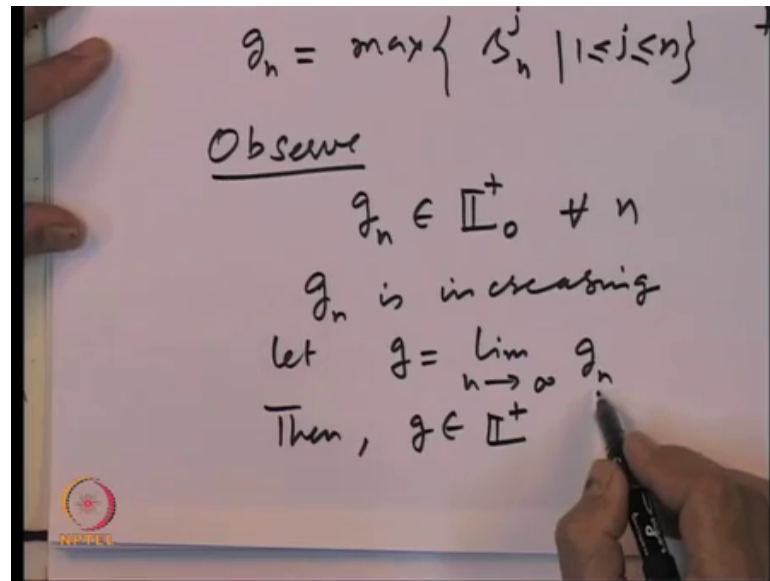 gₙ = max{ sₙʲ | 1≤j≤n}
Observe
gₙ ∈ 𝕃₀⁺ ∀ n
gₙ is increasing
let g = lim gₙ
n→∞
Then, g ∈ 𝕃⁺
NPTEL